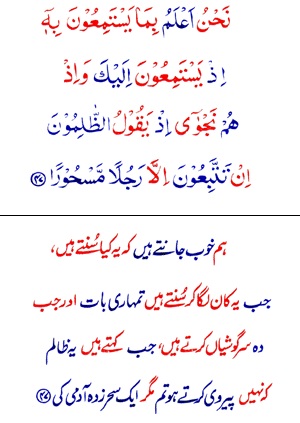 نَحْنُ اَعْلَمُ بِمَا يَسْتَمِعُوْنَ بِهٖۤ
اِذْ يَسْتَمِعُوْنَ اِلَيْكَ وَاِذْ
هُمْ نَجْوٰۤى اِذْ يَقُوْلُ الظّٰلِمُوْنَ
اِنْ تَتَّبِعُوْنَ اِلَّا رَجُلًا مَّسْحُوْرًا ۴۷
ہم خوب جانتے ہیں کہ یہ کیا سُنتے ہیں،
جب یہ کان لگا کر سُنتے ہیں تمہاری بات اور جب
وہ سرگوشیاں کرتے ہیں، جب کہتے ہیں یہ ظالم
کہ نہیں پیروی کرتے ہو تم مگر ایک سحرزدہ آدمی کی ۴۷